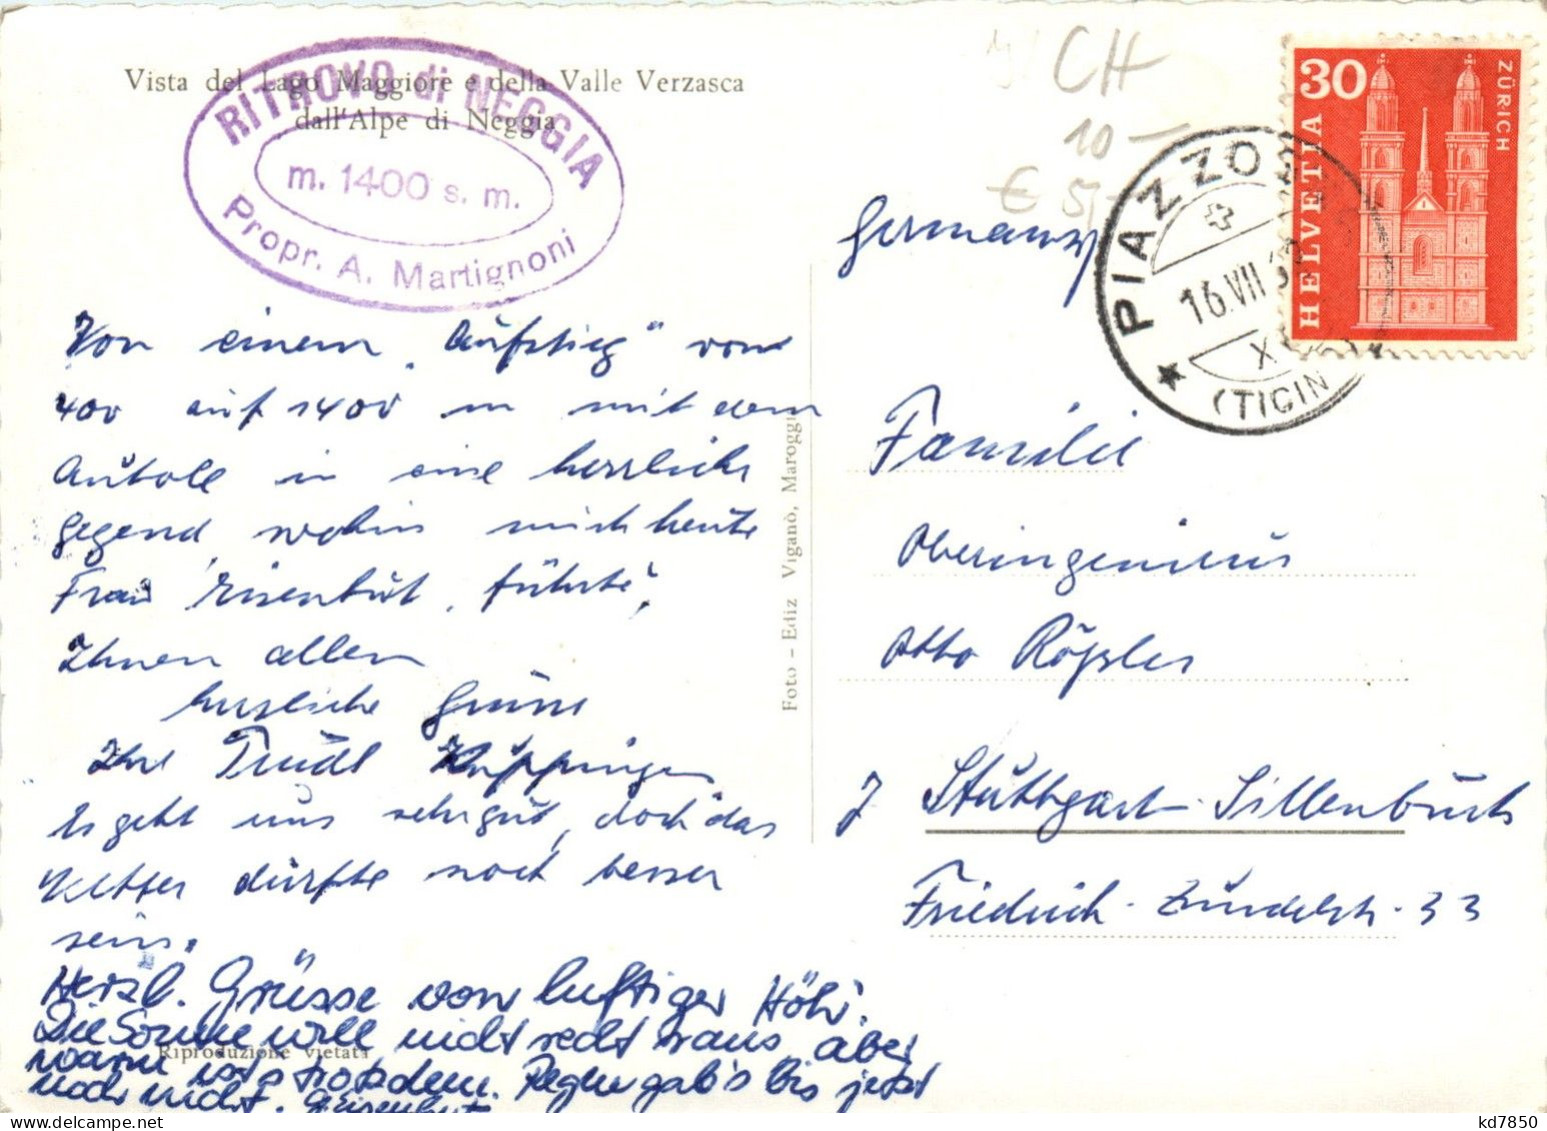 Vista del Lago Maggiore e della Valle Verzasca
dall'Alpe di Neggia
RITROVO di NEGGIA
m. 1400 s. m.
Propr. A. Martignoni
CH
10 —
€ 5,-
30
ZÜRICH
HELVETIA
PIAZZO
16.VII
X
(TICIN
Germany
Von einem "Aufstieg" von
400 auf 1400 m mit dem
Autole in eine herrliche
Gegend, wohin mich heute
Frau Eisenhut "führte",
Ihnen allen
herzliche Grüße
Ihre Trudl
Es geht uns sehr gut, doch das
Wetter dürfte noch besser
sein.
Herzl. Grüsse von luftiger Höh'.
Die Sonne will nicht recht raus, aber
warm ist's trotzdem. Regen gab's bis jetzt
noch nicht. Eisenhut
Riproduzione vietata
Foto - Ediz Viganò, Maroggi
Familie
Oberingenieur
Otto Rößler
7 Stuttgart-Sillenbuch
Friedrich-Zundelstr. 33
kd7850